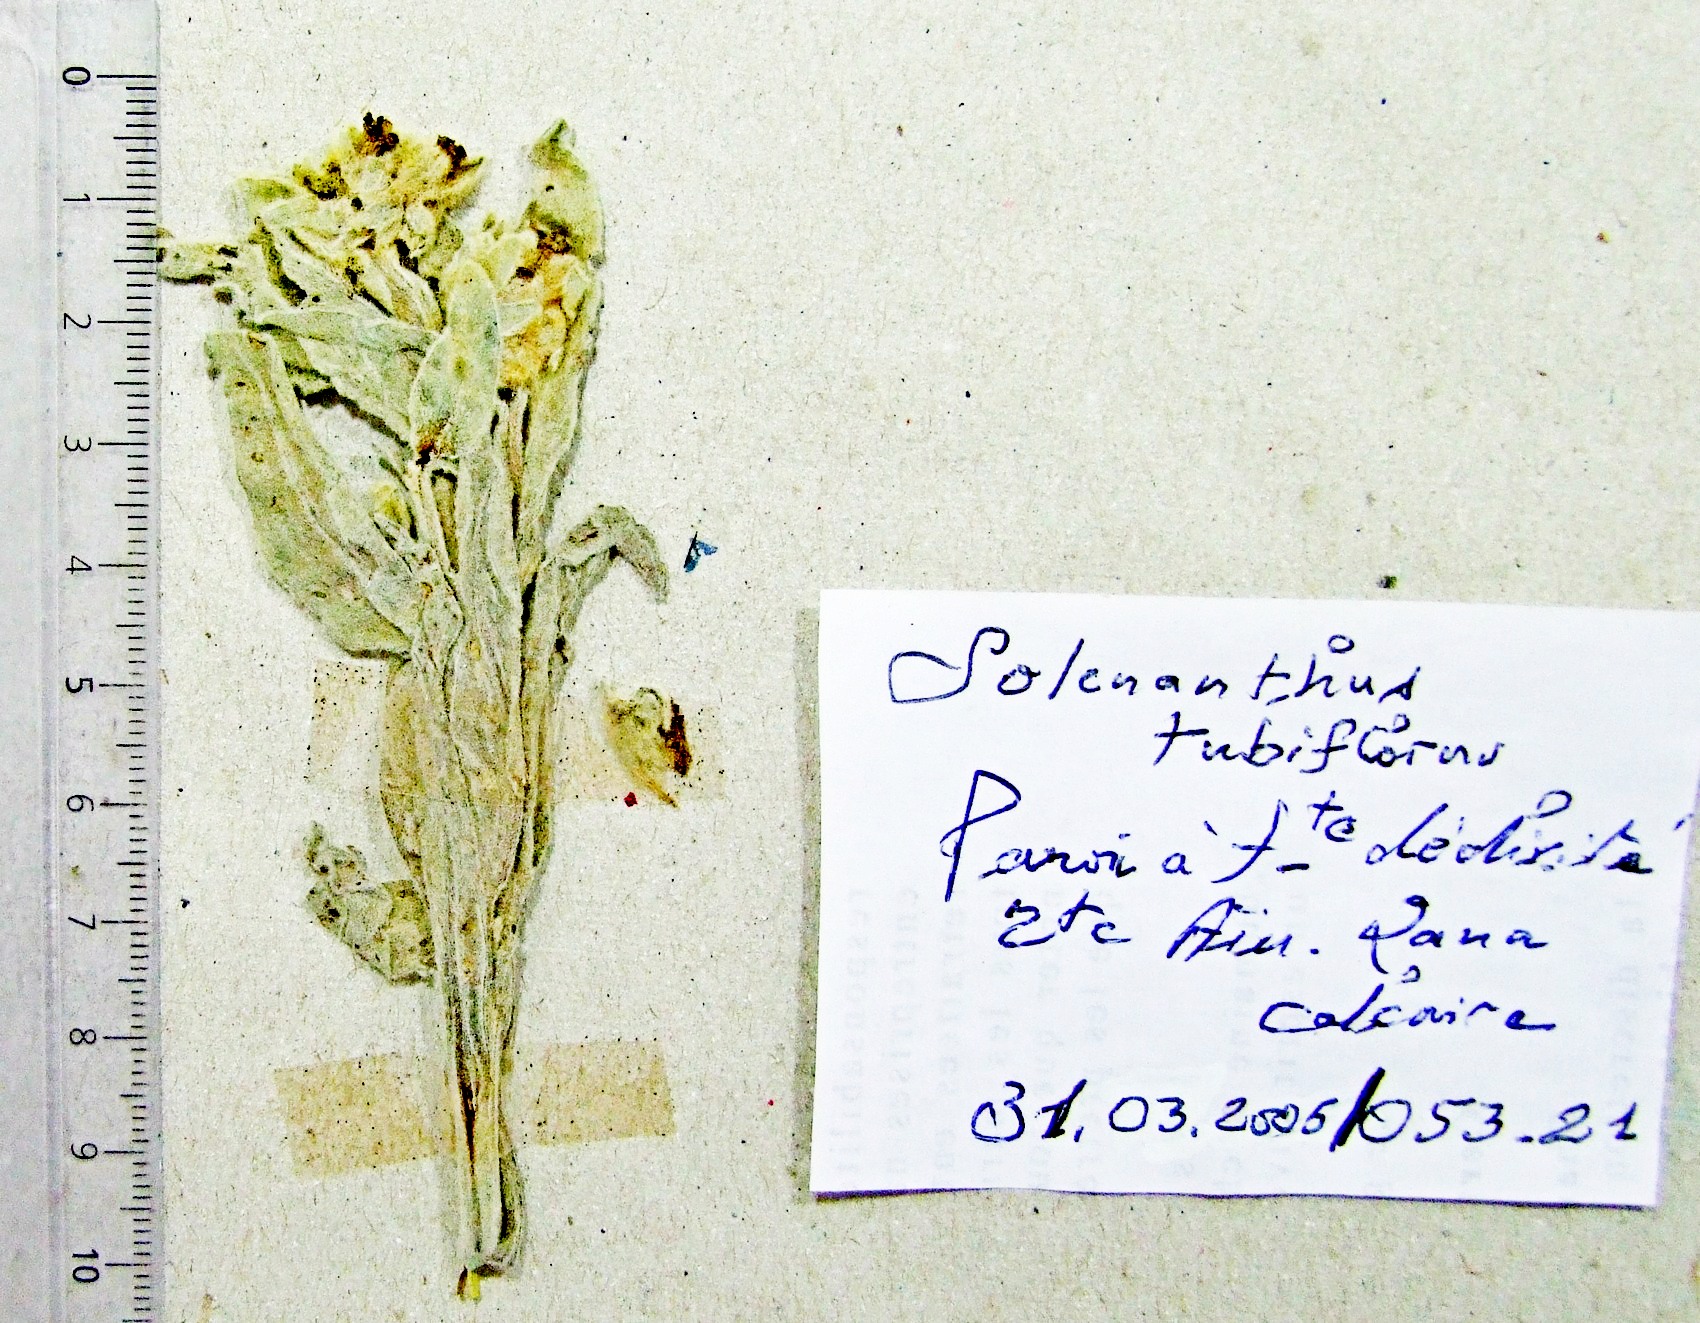 0
1
2
3
4
5
6
7
8
9
10
Solenanthus
tubiflorus
Paroi à f_te déclivité
Rte Ain. Zana
calcaire
31.03.2005/053.21